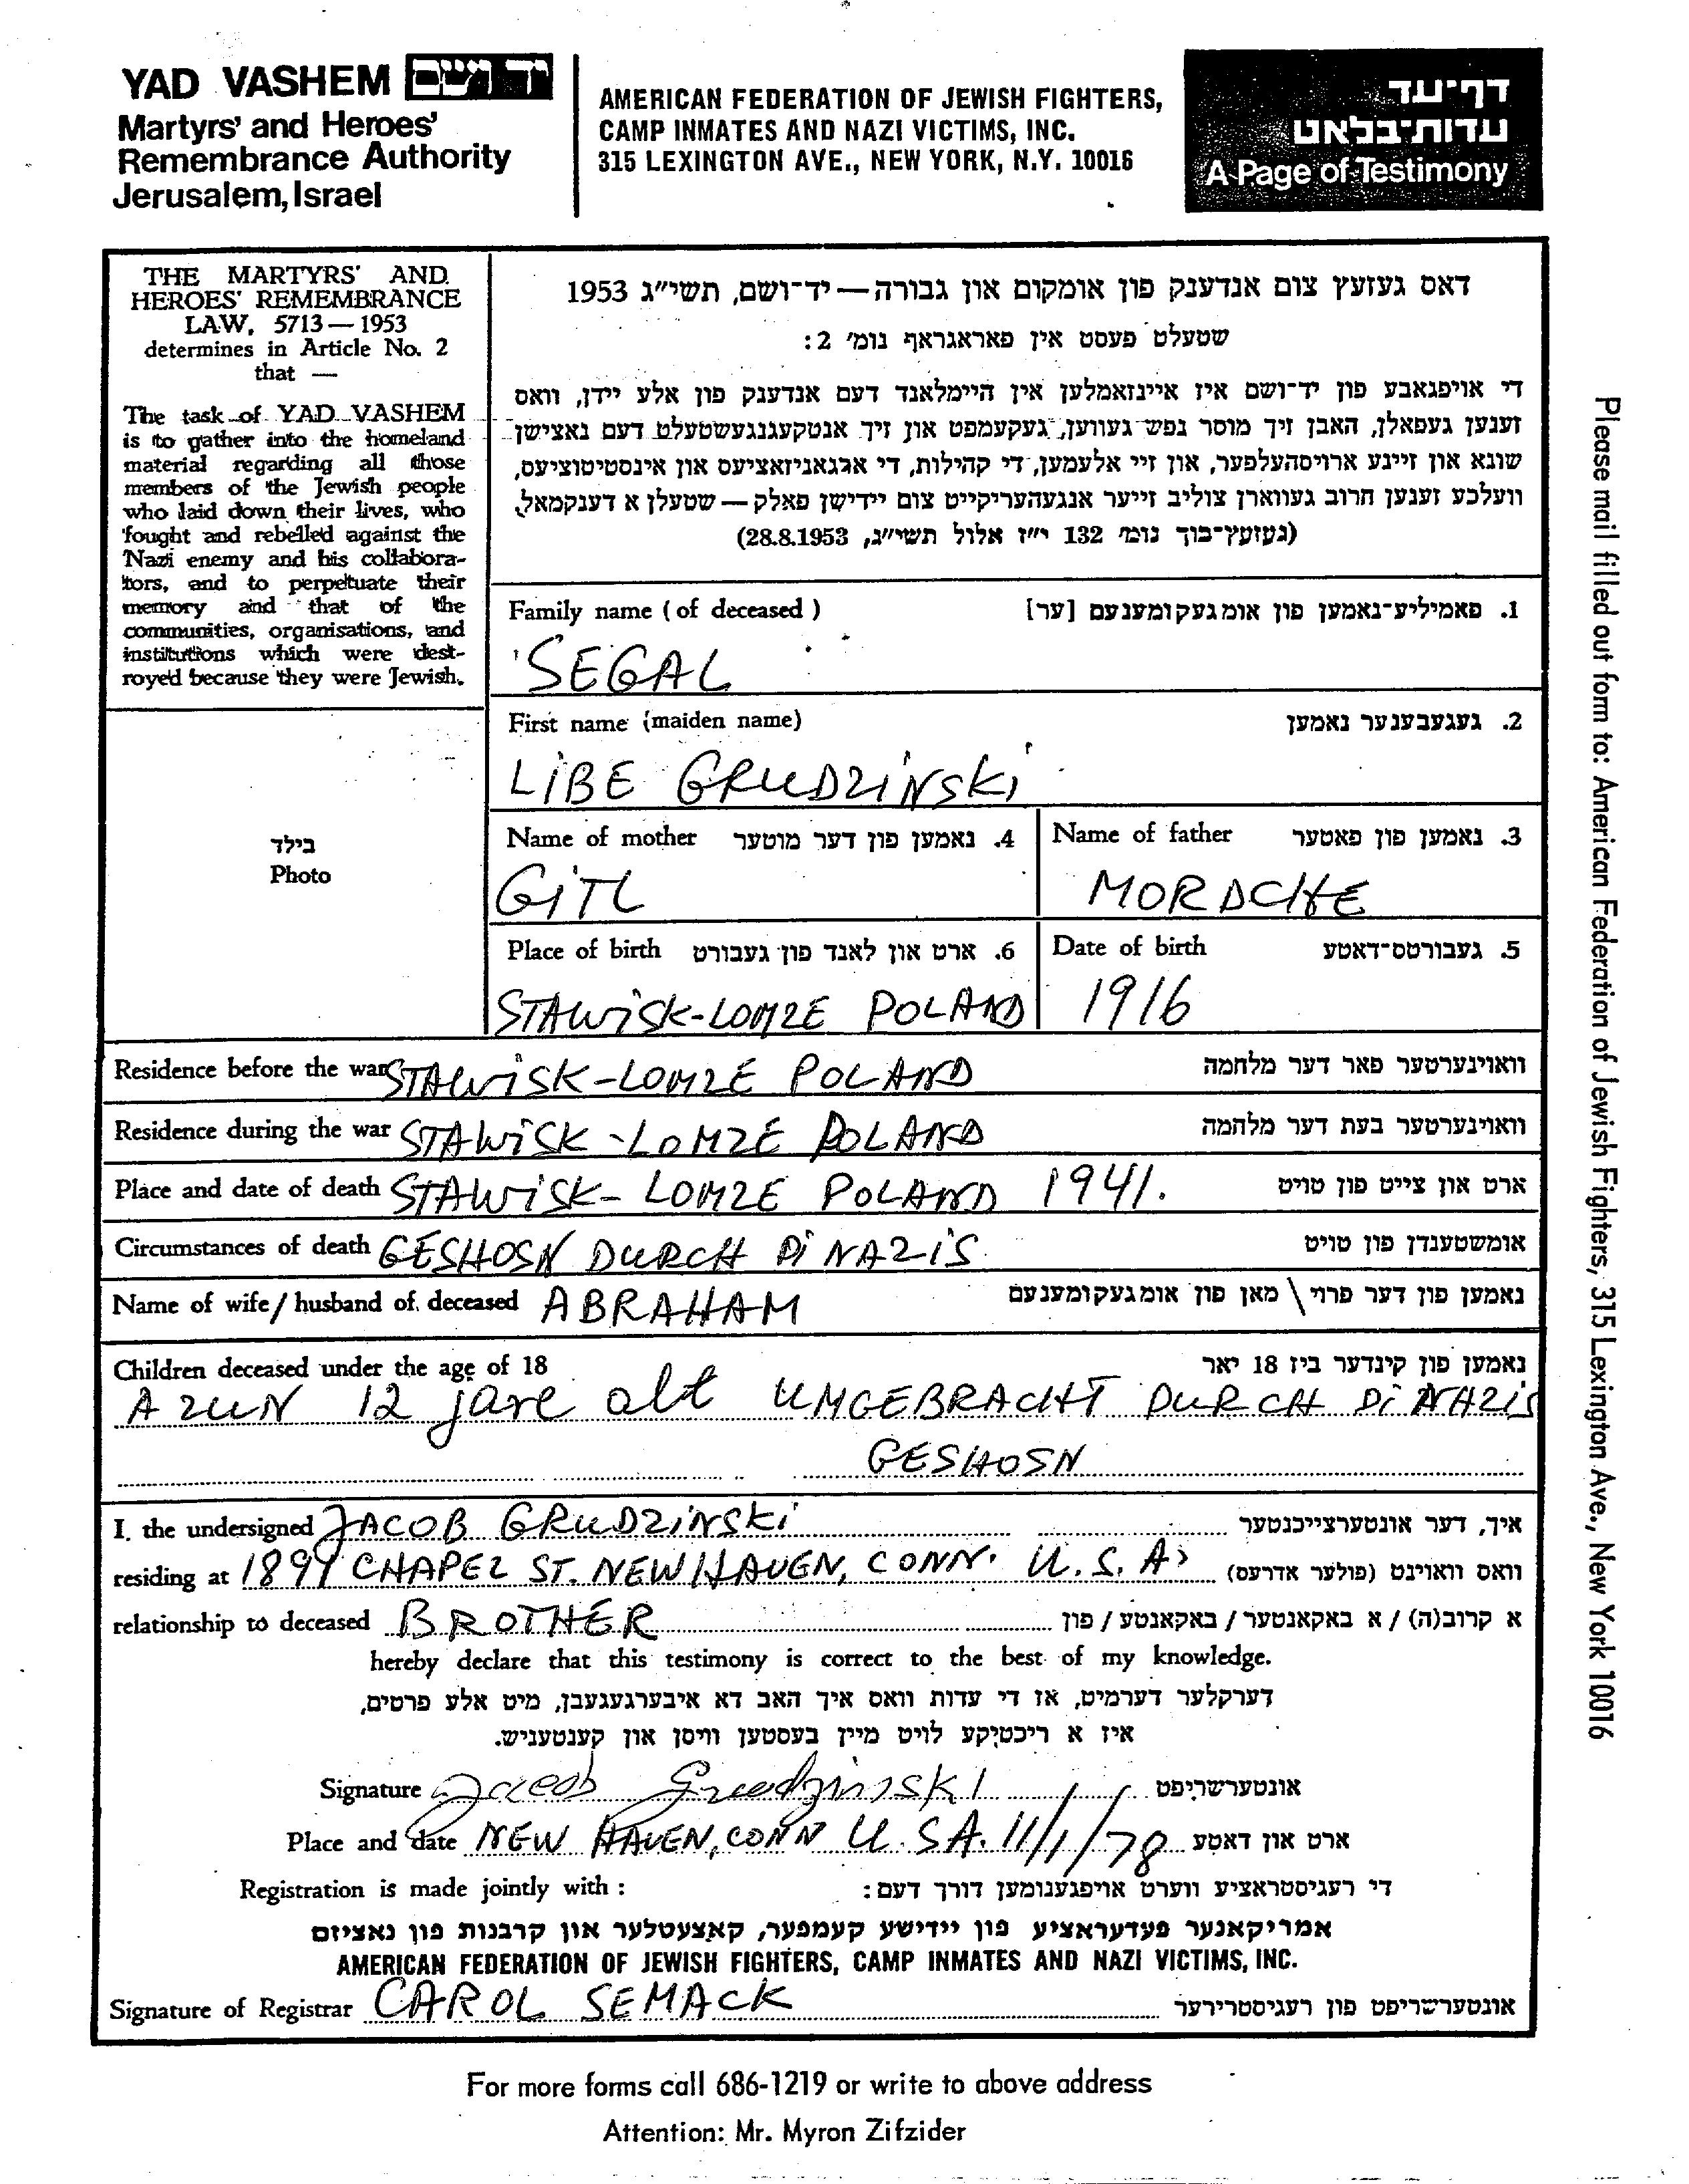 YAD VASHEM יד ושם
Martyrs' and Heroes'
Remembrance Authority
Jerusalem, Israel
AMERICAN FEDERATION OF JEWISH FIGHTERS,
CAMP INMATES AND NAZI VICTIMS, INC.
315 LEXINGTON AVE., NEW YORK, N.Y. 10016
דף־עד
עדות־בלאט
A Page of Testimony
THE MARTYRS' AND
HEROES' REMEMBRANCE
LAW, 5713—1953
determines in Article No. 2
that —
The task of YAD VASHEM
is to gather into the homeland
material regarding all those
members of the Jewish people
who laid down their lives, who
fought and rebelled against the
Nazi enemy and his collabora-
tors, and to perpetuate their
memory and that of the
communities, organisations, and
institutions which were dest-
royed because they were Jewish.
דאס געזעץ צום אנדענק פון אומקום און גבורה — יד־ושם, תשי"ג 1953
שטעלט פעסט אין פאראגראף נומ' 2:
די אויפגאבע פון יד־ושם איז איינזאמלען אין היימלאנד דעם אנדענק פון אלע יידן, וואס
זענען געפאלן, האבן זיך מוסר נפש געווען, געקעמפט און זיך אנטקעגנגעשטעלט דעם נאצישן
שונא און זיינע ארויסהעלפער, און זיי אלעמען, די קהילות, די ארגאניזאציעס און אינסטיטוציעס,
וועלכע זענען חרוב געווארן צוליב זייער אנגעהעריקייט צום יידישן פאלק — שטעלן א דענקמאל.
(געזעץ־בוך נומ' 132 י"ז אלול תשי"ג, 28.8.1953)
Family name (of deceased) 1. פאמיליע־נאמען פון אומגעקומענעם [ער]
SEGAL
First name (maiden name) 2. געגעבענער נאמען
LIBE GRUDZINSKI
בילד
Photo
Name of mother 4. נאמען פון דער מוטער
Name of father 3. נאמען פון פאטער
GITL
MORDCHE
Place of birth 6. ארט און לאנד פון געבורט
Date of birth 5. געבורטס־דאטע
STAWISK-LOMZE POLAND
1916
Residence before the war STAWISK-LOMZE POLAND וואוינערטער פאר דער מלחמה
Residence during the war STAWISK-LOMZE POLAND וואוינערטער בעת דער מלחמה
Place and date of death STAWISK-LOMZE POLAND 1941. ארט און צייט פון טויט
Circumstances of death GESHOSN DURCH DI NAZIS. אומשטענדן פון טויט
Name of wife/husband of deceased ABRAHAM נאמען פון דער פרוי \ מאן פון אומגעקומענעם
Children deceased under the age of 18 נאמען פון קינדער ביז 18 יאר
A ZUN 12 jare alt UMGEBRACHT DURCH DI NAZIS
GESHOSN
I, the undersigned JACOB GRUDZINSKI איך, דער אונטערצייכנטער
residing at 1899 CHAPEL ST. NEW HAVEN, CONN. U.S.A. וואס וואוינט (פולער אדרעס)
relationship to deceased BROTHER א קרוב(ה) / א באקאנטער / באקאנטע / פון
hereby declare that this testimony is correct to the best of my knowledge.
דערקלער דערמיט, אז די עדות וואס איך האב דא איבערגעגעבן, מיט אלע פרטים,
איז א ריכטיקע לויט מיין בעסטען וויסן און קענטעניש.
Signature Jacob Grudzinski אונטערשריפט
Place and date NEW HAVEN, CONN U.S.A. 11/1/78 ארט און דאטע
Registration is made jointly with: די רעגיסטראציע ווערט אויפגענומען דורך דעם:
אמריקאנער פעדעראציע פון יידישע קעמפער, קאצעטלער און קרבנות פון נאציזם
AMERICAN FEDERATION OF JEWISH FIGHTERS, CAMP INMATES AND NAZI VICTIMS, INC.
Signature of Registrar CAROL SEMACK אונטערשריפט פון רעגיסטרירער
For more forms call 686-1219 or write to above address
Attention: Mr. Myron Zifzider
Please mail filled out form to: American Federation of Jewish Fighters, 315 Lexington Ave., New York 10016